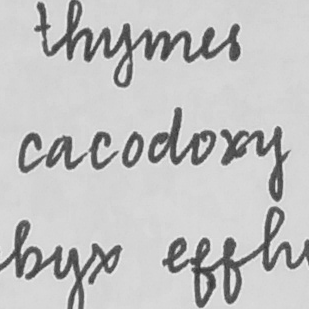 thymes
cacodoxy
byx